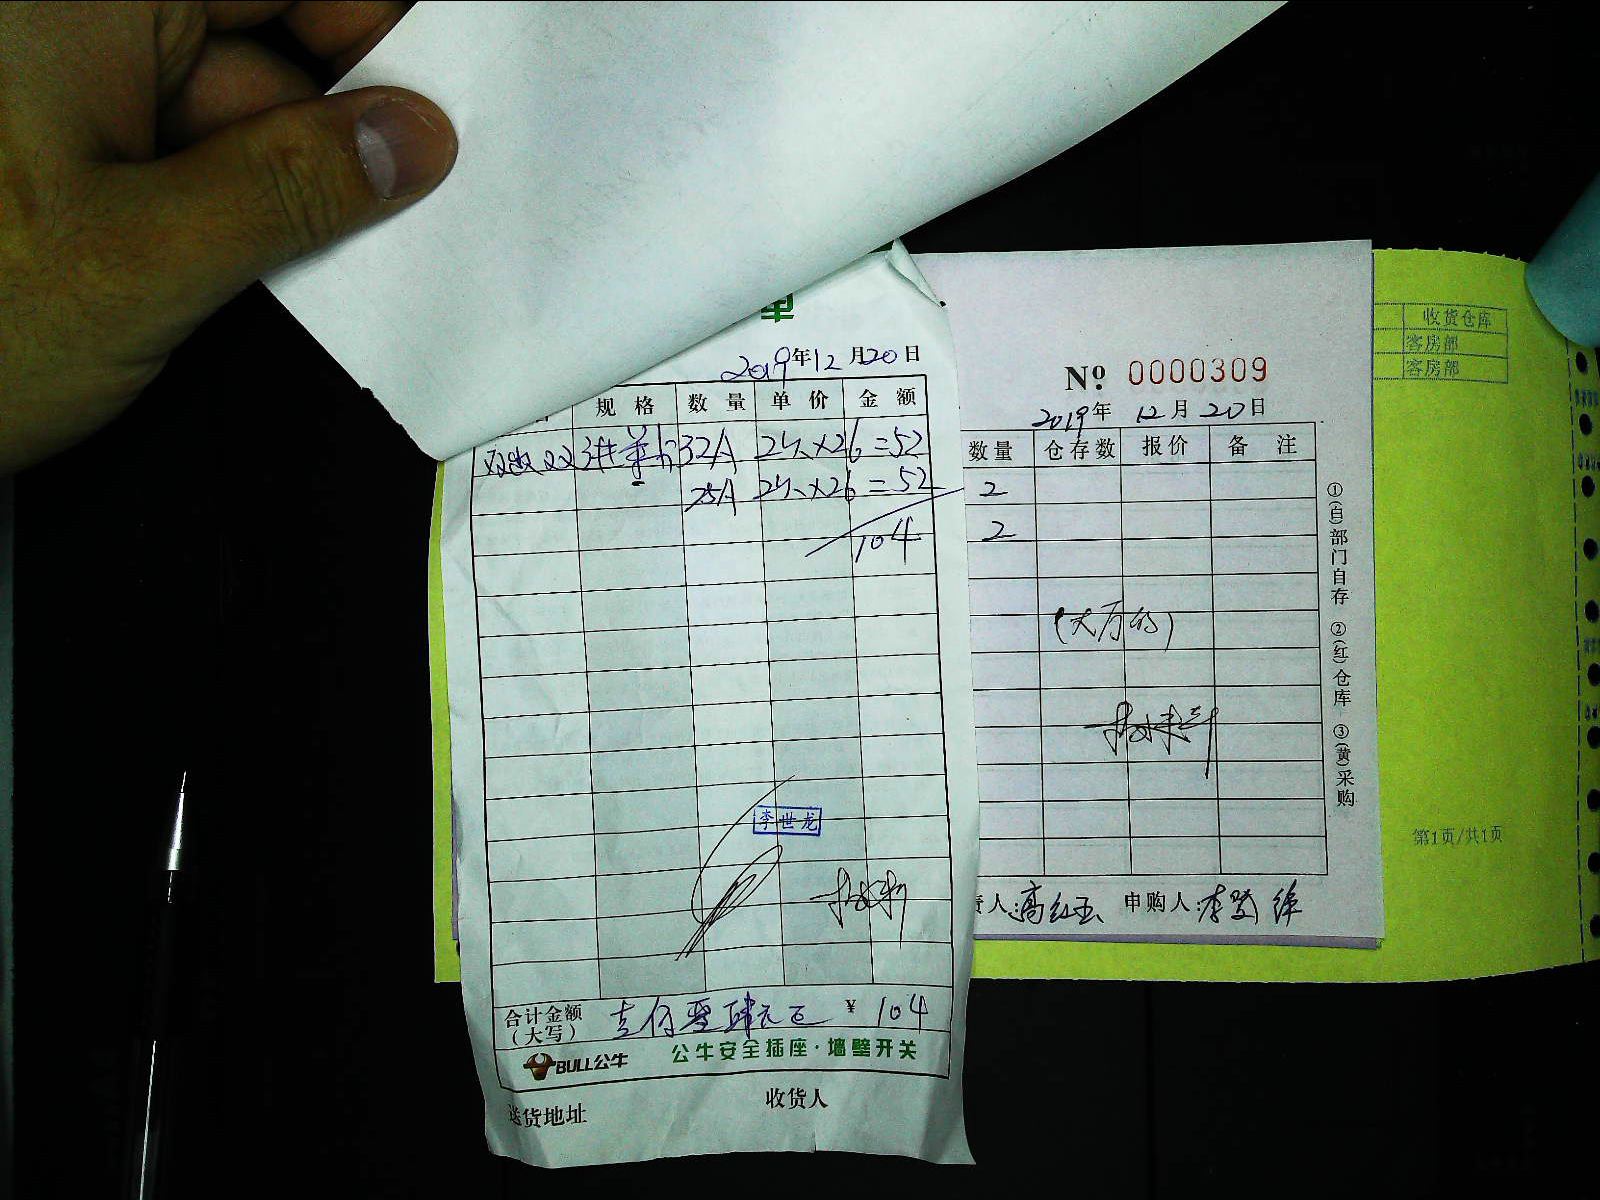 单
2019年12月20日
规格 数量 单价 金额
32A 2个×26=52
25A 2个×26=52
104
李世龙
合计金额
(大写)
壹佰零肆元正 ¥ 104
BULL公牛 公牛安全插座·墙壁开关
送货地址
收货人
№ 0000309
2019年12月20日
数量 仓存数 报价 备注
2
2
责人:高红玉 申购人:李
①(白)部门自存 ②(红)仓库 ③(黄)采购
收货仓库
客房部
客房部
第1页/共1页